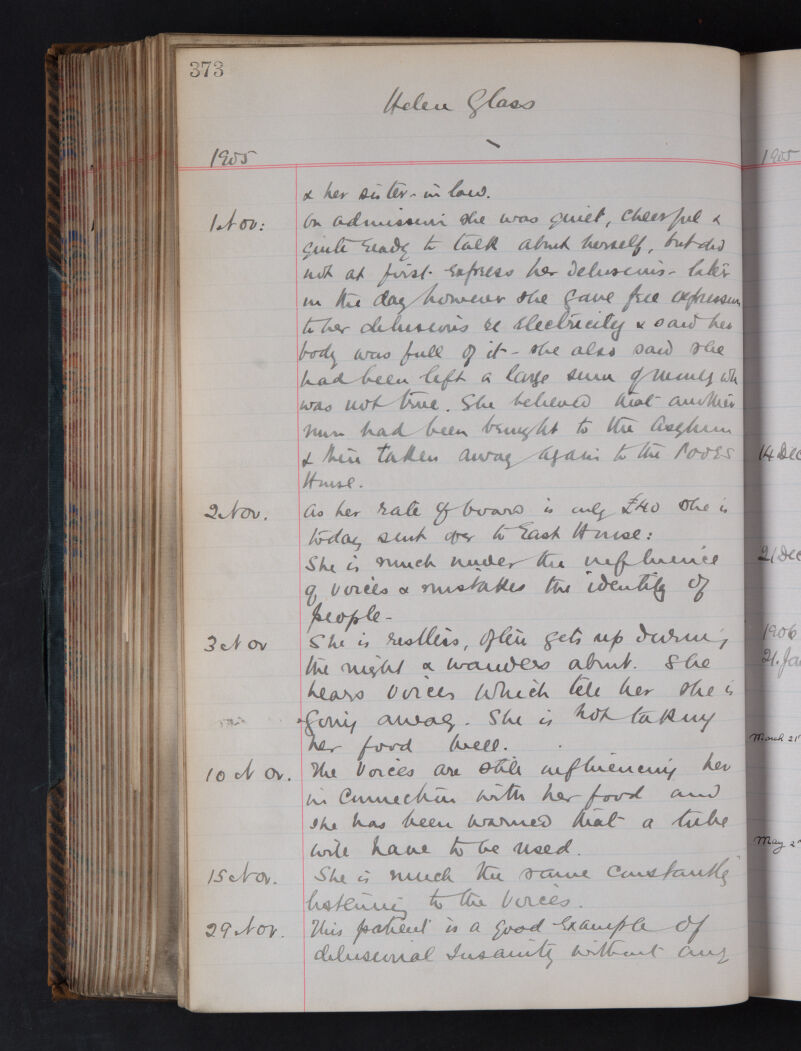 373
Helen Glass
1905
& her sister-in law.
1 Nov: On admission she was quiet, cheerful &
quite ready to talk about herself, but did
not at first express her Delusions - later
in the day however she gave free expression
to her delusions re electricity & said her
body was full of it - she also said she
had been left a large sum of money wh
was not true. She believed that another
nun had been brought to the Asylum
& then taken away again to the Poors
House.
2 Nov. As her rate of board is only £40 she is
today sent over to East House:
She is much under the influence
of voices & mistakes the identity of
people -
3 Nov She is restless, often gets up during
the night & wanders about. She
hears voices which tell her she is
going away. She is not taking
her food well.
10 Nov. The voices are still influencing her
in connection with her food and
she has been warned that a tube
will have to be used.
15 Nov. She is much the same constantly
listening to the voices.
29 Nov. This patient is a good example of
delusional Insanity without any
1905
14 Dec
21 Dec
1906
21. Ja
March 21
May 2